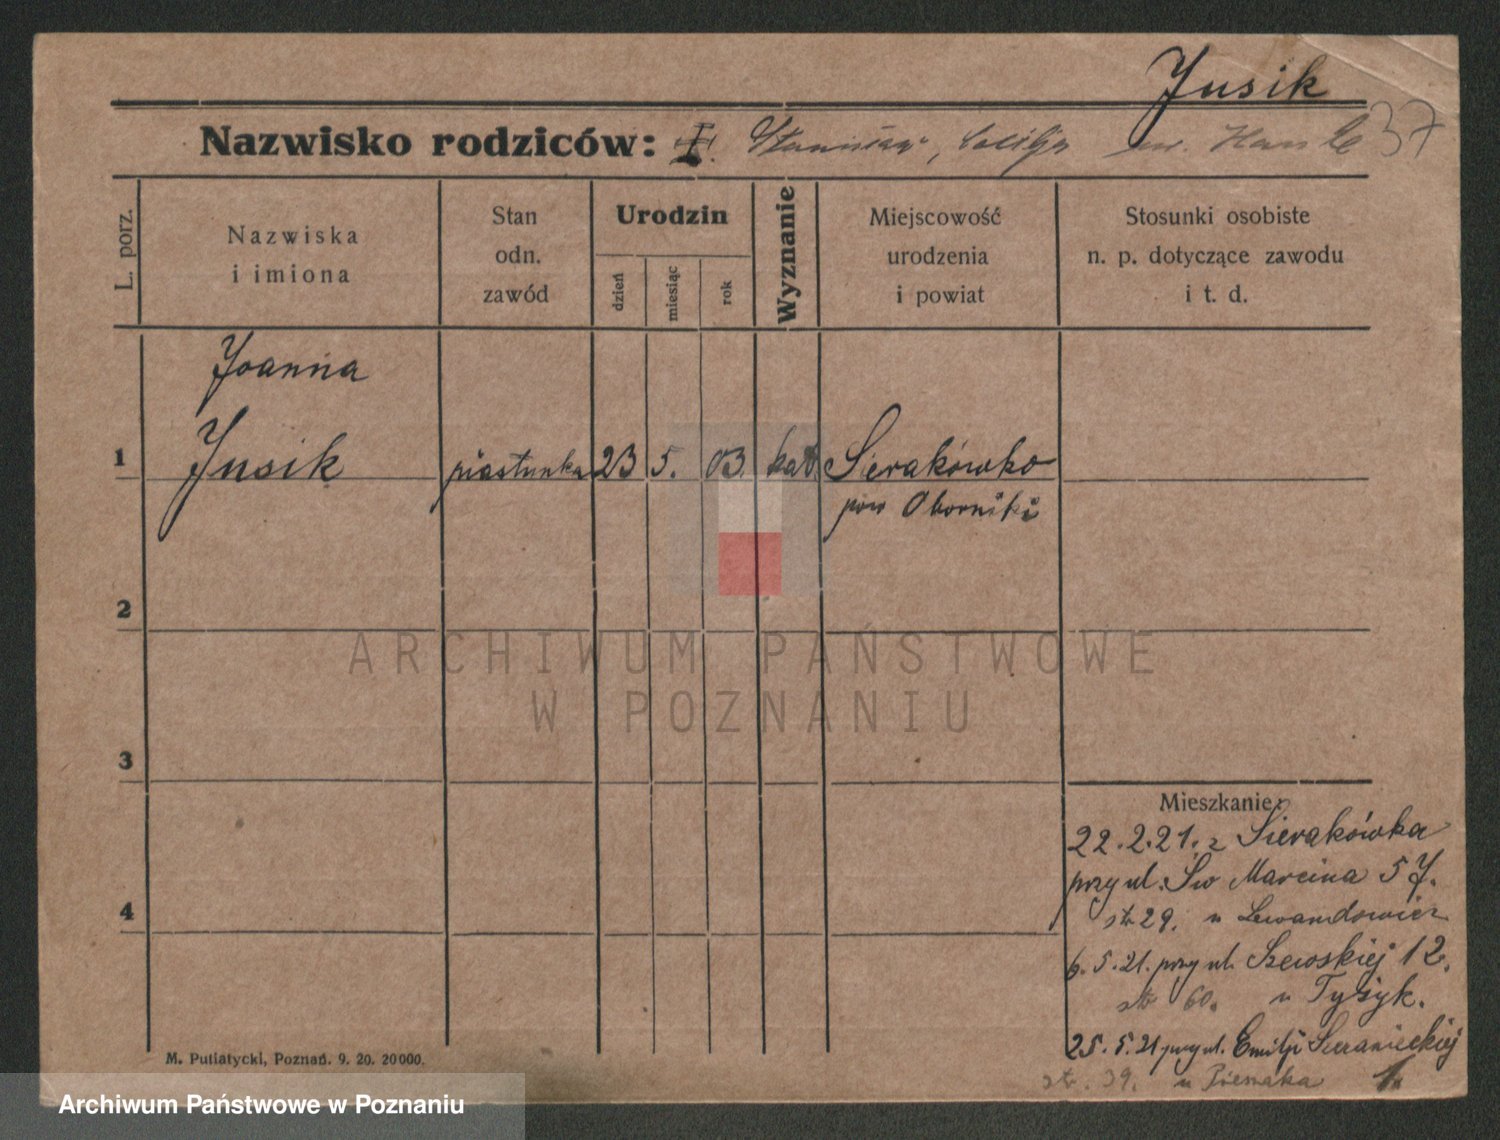 Jusik
Nazwisko rodziców: I. Stanisław, 37
L. porz.
Nazwiska
i imiona
Stan
odn.
zawód
Urodzin
dzień
miesiąc
rok
Wyznanie
Miejscowość
urodzenia
i powiat
Stosunki osobiste
n. p. dotyczące zawodu
i t. d.
Joanna
1 Jusik piastunka 23 5. 03. kat. Sierakówko
pow Oborniki
2
ARCHIWUM PAŃSTWOWE
W POZNANIU
3
Mieszkanie:
22.2.21. z Sierakówka
przy ul. Św Marcina 57.
str 29. u Lewandowicz
4
6.5.21. przy ul. Szewskiej 12.
str 60. u
25.5.21 przy ul. Emilji Sczanieckiej
str. 39. u 1.
M. Putiatycki, Poznań. 9. 20. 20000.
Archiwum Państwowe w Poznaniu